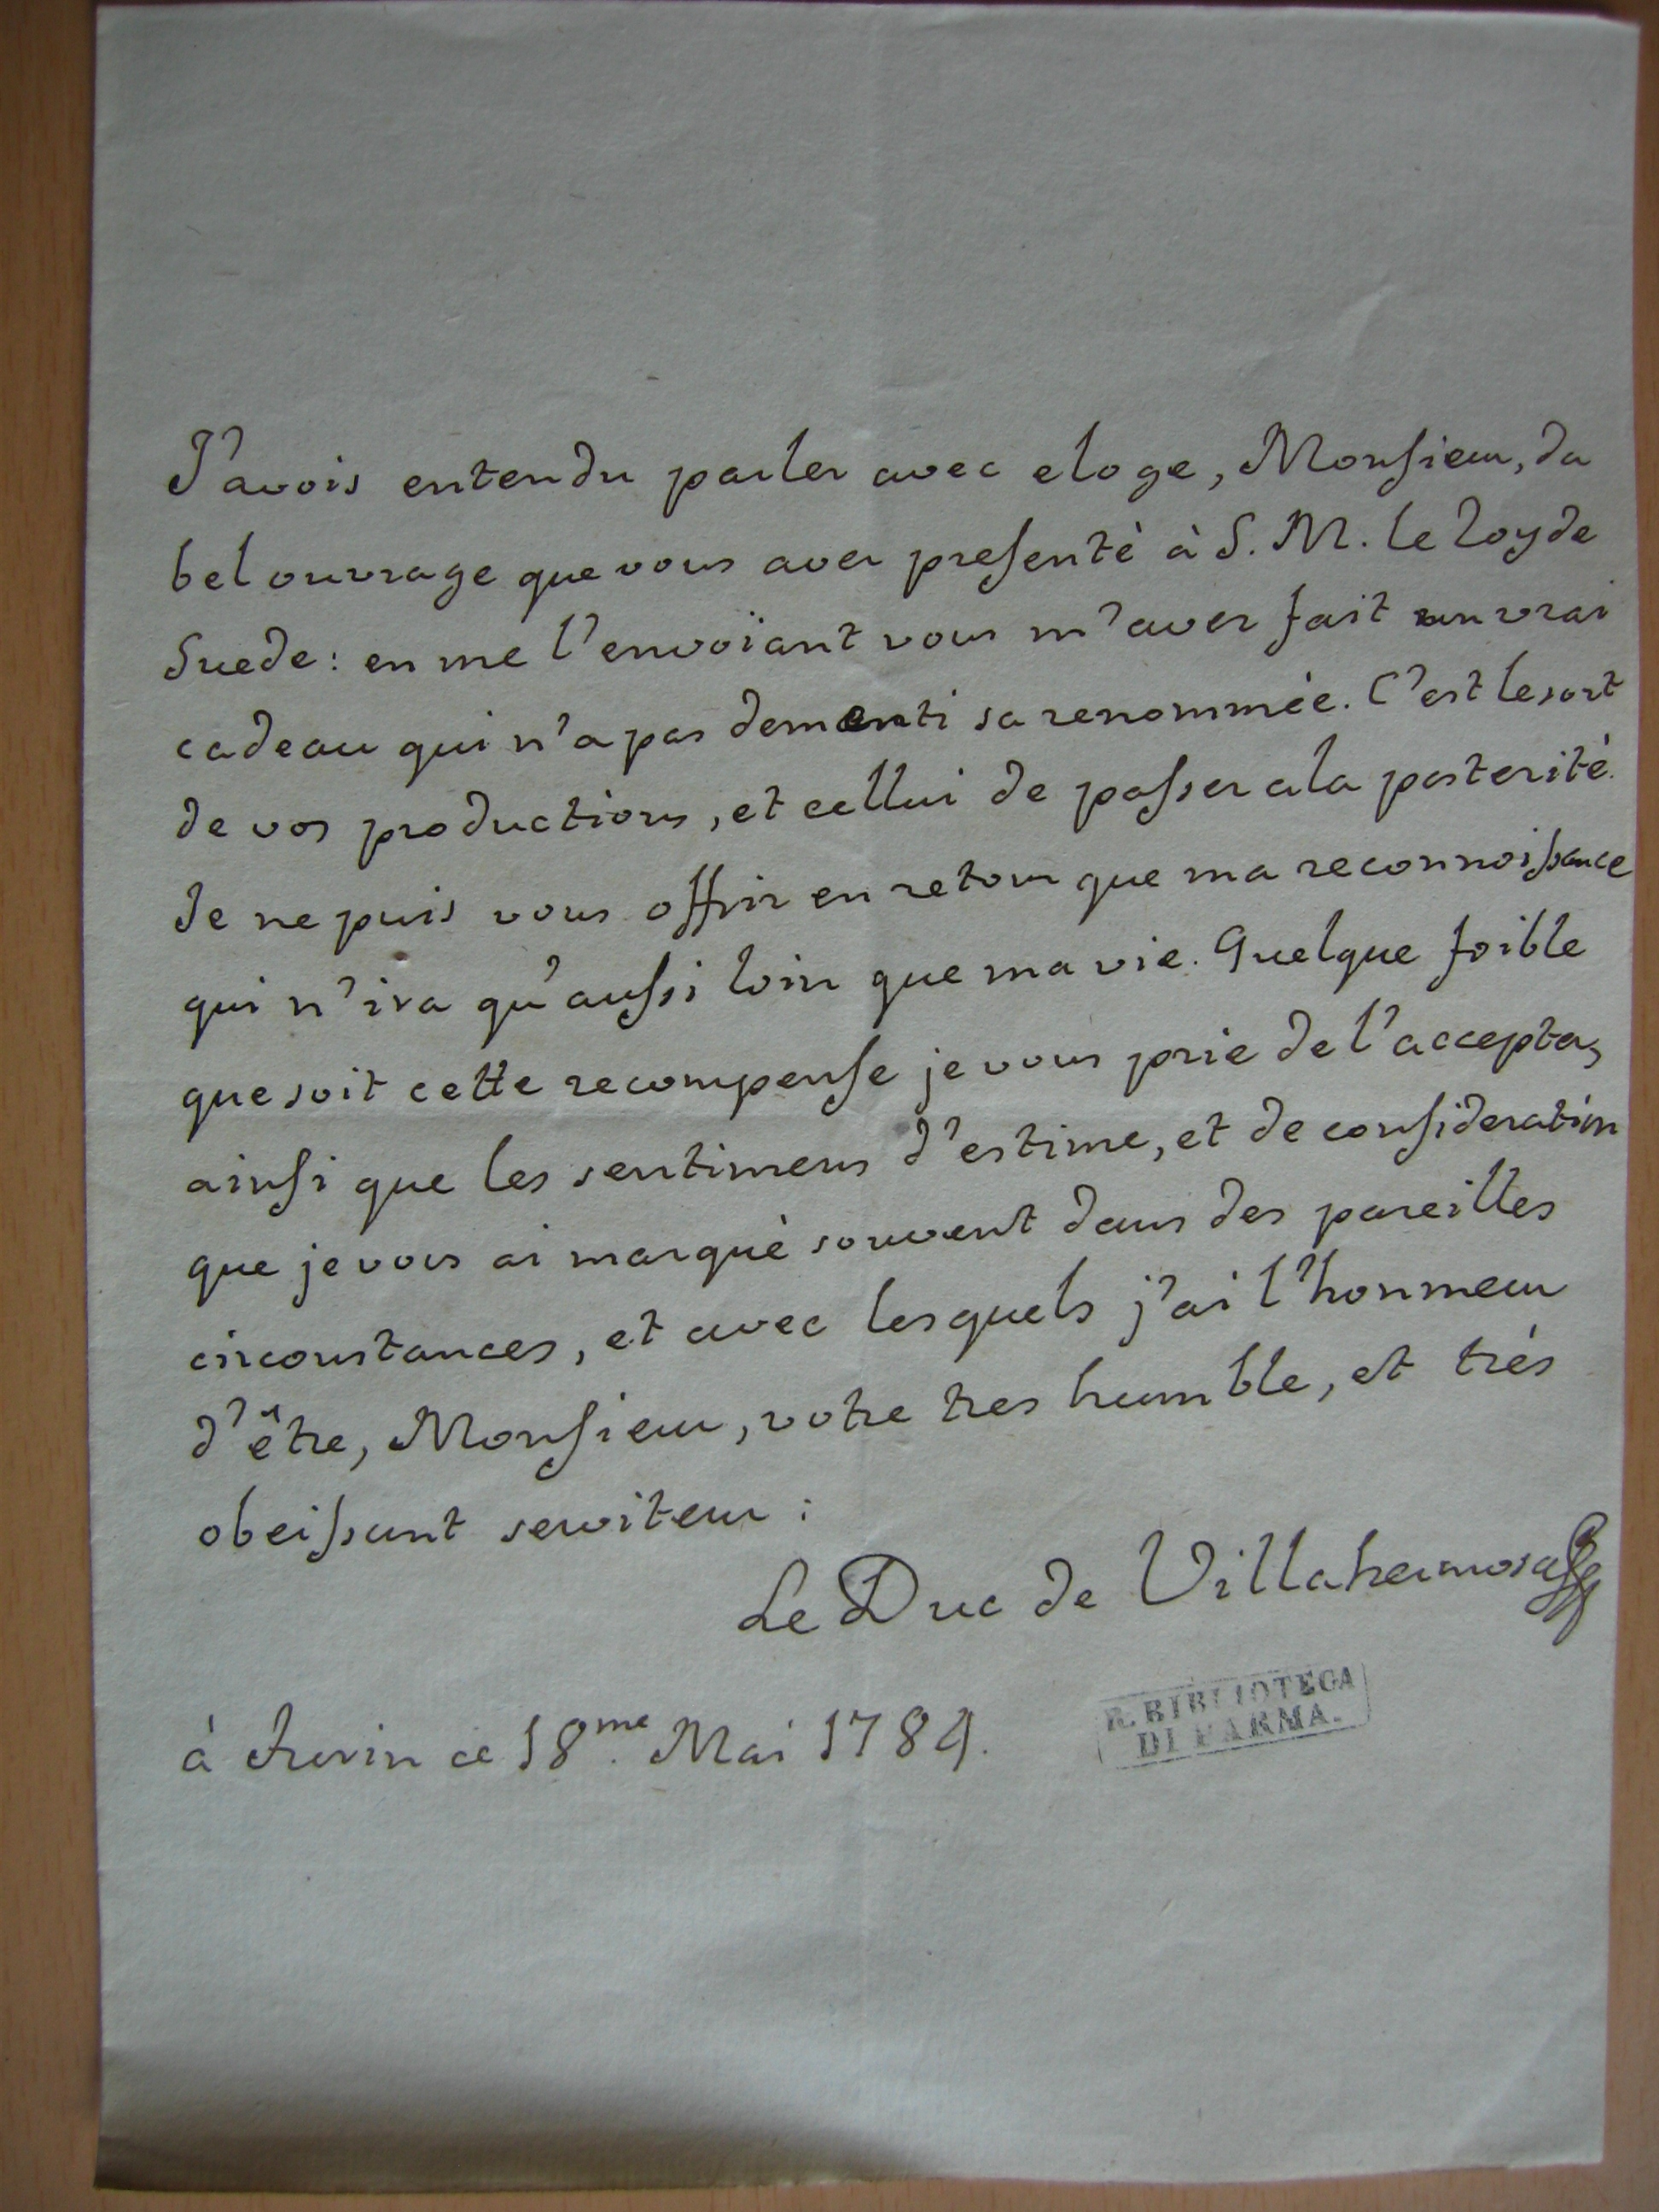 J'avois entendu parler avec eloge, Monsieur, du
bel ouvrage que vous avez presenté à S. M. le Roy de
Suede: en me l'envoïant vous m'avez fait un vrai
cadeau qui n'a pas dementi sa renommée. C'est le sort
de vos productions, et cellui de passer a la posterité.
Je ne puis vous offrir en retour que ma reconnoissance
qui n'ira qu'aussi loin que ma vie. Quelque foible
que soit cette recompense je vous prie de l'accepter,
ainsi que les sentimens d'estime, et de consideration
que je vous ai marqué souvent dans des pareilles
circonstances, et avec lesquels j'ai l'honneur
d'être, Monsieur, votre tres humble, et trés
obeissant serviteur:
Le Duc de Villahermosa
à Turin ce 18.me Mai 1784.
R. BIBLIOTECA
DI PARMA.